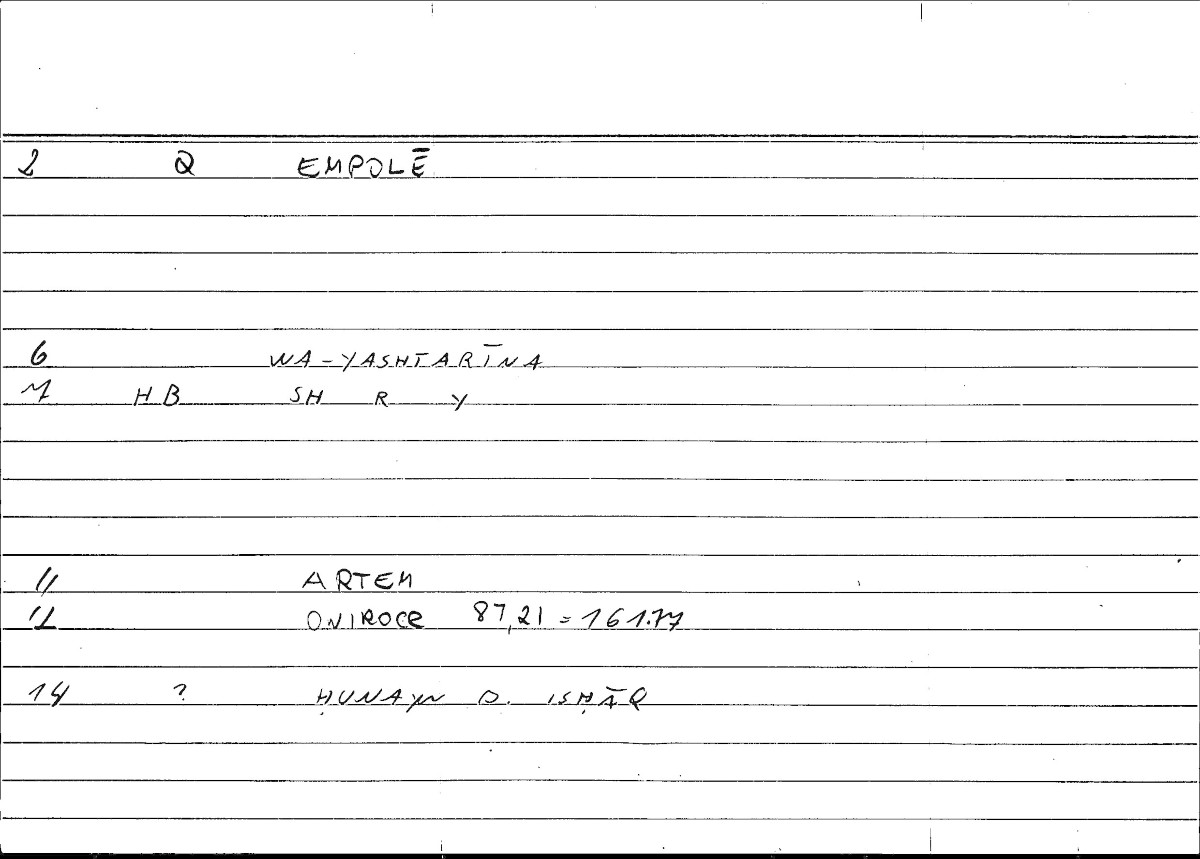 2 Q EMPOLĒ
6 WA-YASHTARĪNA
7 HB SH R Y
11 ARTEM
12 ONIROCR 87,21 = 161.77
14 ? ḤUNAYN B. ISḤĀQ